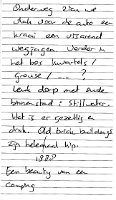 Onderweg zien we
vlak voor de auto een
kraai een uitgerend
wegvangen. Verder in
het bos kwartels /
grouse / ... ?
Leuk dorp met oude
binnenstad : Stillwater.
Wat is er gezellig en
druk. Old brick buildings
zijn helemaal hip.
1888
Een beauty van een
camping